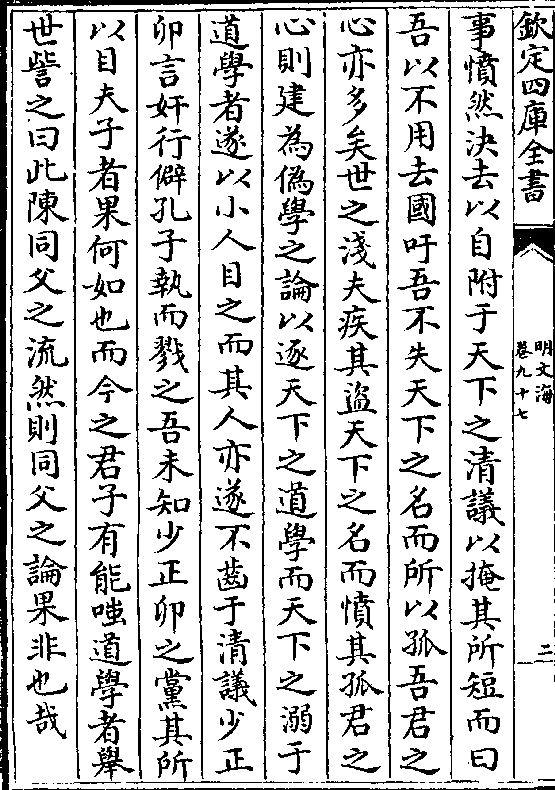 欽定四庫全書
明文海
卷九十七
二
事憤然決去以自附于天下之清議以掩其所短而曰
吾以不用去國吁吾不失天下之名而所以孤吾君之
心亦多矣世之淺夫疾其盜天下之名而憤其孤君之
心則建為偽學之論以逐天下之道學而天下之溺于
道學者遂以小人目之而其人亦遂不齒于清議少正
卯言奸行僻孔子執而戮之吾未知少正卯之黨其所
以目夫子者果何如也而今之君子有能嗤道學者舉
世訾之曰此陳同父之流然則同父之論果非也哉